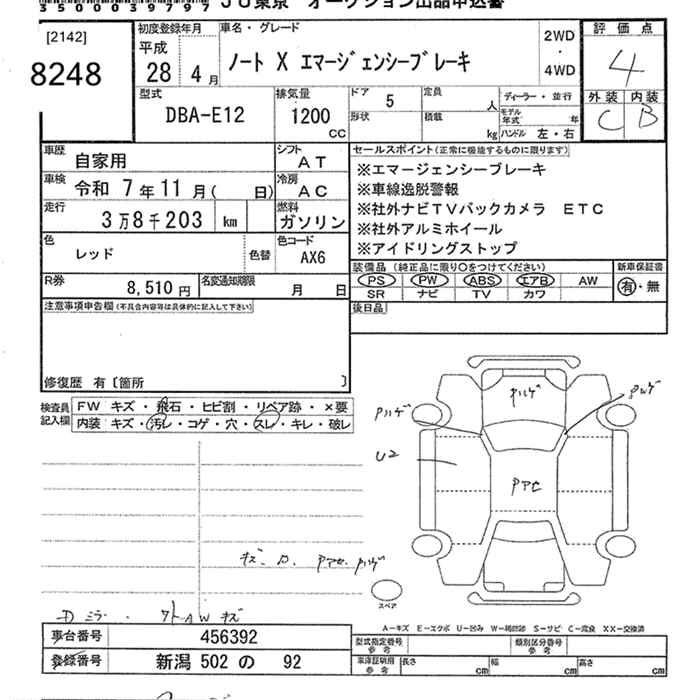 35000339797 JU東京 オークション出品申込書
[2142]
8248
初度登録年月
平成
28 4月
車名・グレード
ノート X エマージェンシーブレーキ
2WD
・
4WD
評価点
4
外装 内装
C B
型式
DBA-E12
排気量
1200
CC
ドア 5
形状
定員 人
積載 kg
ディーラー・並行
モデル年式 年
ハンドル 左・右
車歴
自家用
シフト
AT
車検
令和 7年11月( 日)
冷房
AC
走行
3万8千203 km
燃料
ガソリン
色
レッド
色替
色コード
AX6
R券
8,510円
名変通知期限
月 日
セールスポイント(正常に機能するものに限ります)
※エマージェンシーブレーキ
※車線逸脱警報
※社外ナビTVバックカメラ ETC
※社外アルミホイール
※アイドリングストップ
装備品(純正品に限り○をつけてください)
PS PW ABS エアB AW
SR ナビ TV カワ
新車保証書
有・無
後日品
注意事項申告欄(不具合内容等は具体的に記入して下さい)
修復歴 有〔箇所 〕
検査員
記入欄
FW キズ・飛石・ヒビ割・リペア跡・×要
内装 キズ・汚レ・コゲ・穴・スレ・キレ・破レ
Pハゲ
Pハゲ
Pハゲ
U2
Pアセ
キズ. カ. Pアセ. Pハゲ
Dミラー. ソトAWキズ
スペア
A-キズ E-エクボ U-凹み W-補修跡 S-サビ C-腐食 XX-交換済
車台番号 456392
登録番号 新潟 502 の 92
型式指定番号
参考
類別区分番号
参考
車庫証明用
参考
長さ cm 幅 cm 高さ cm